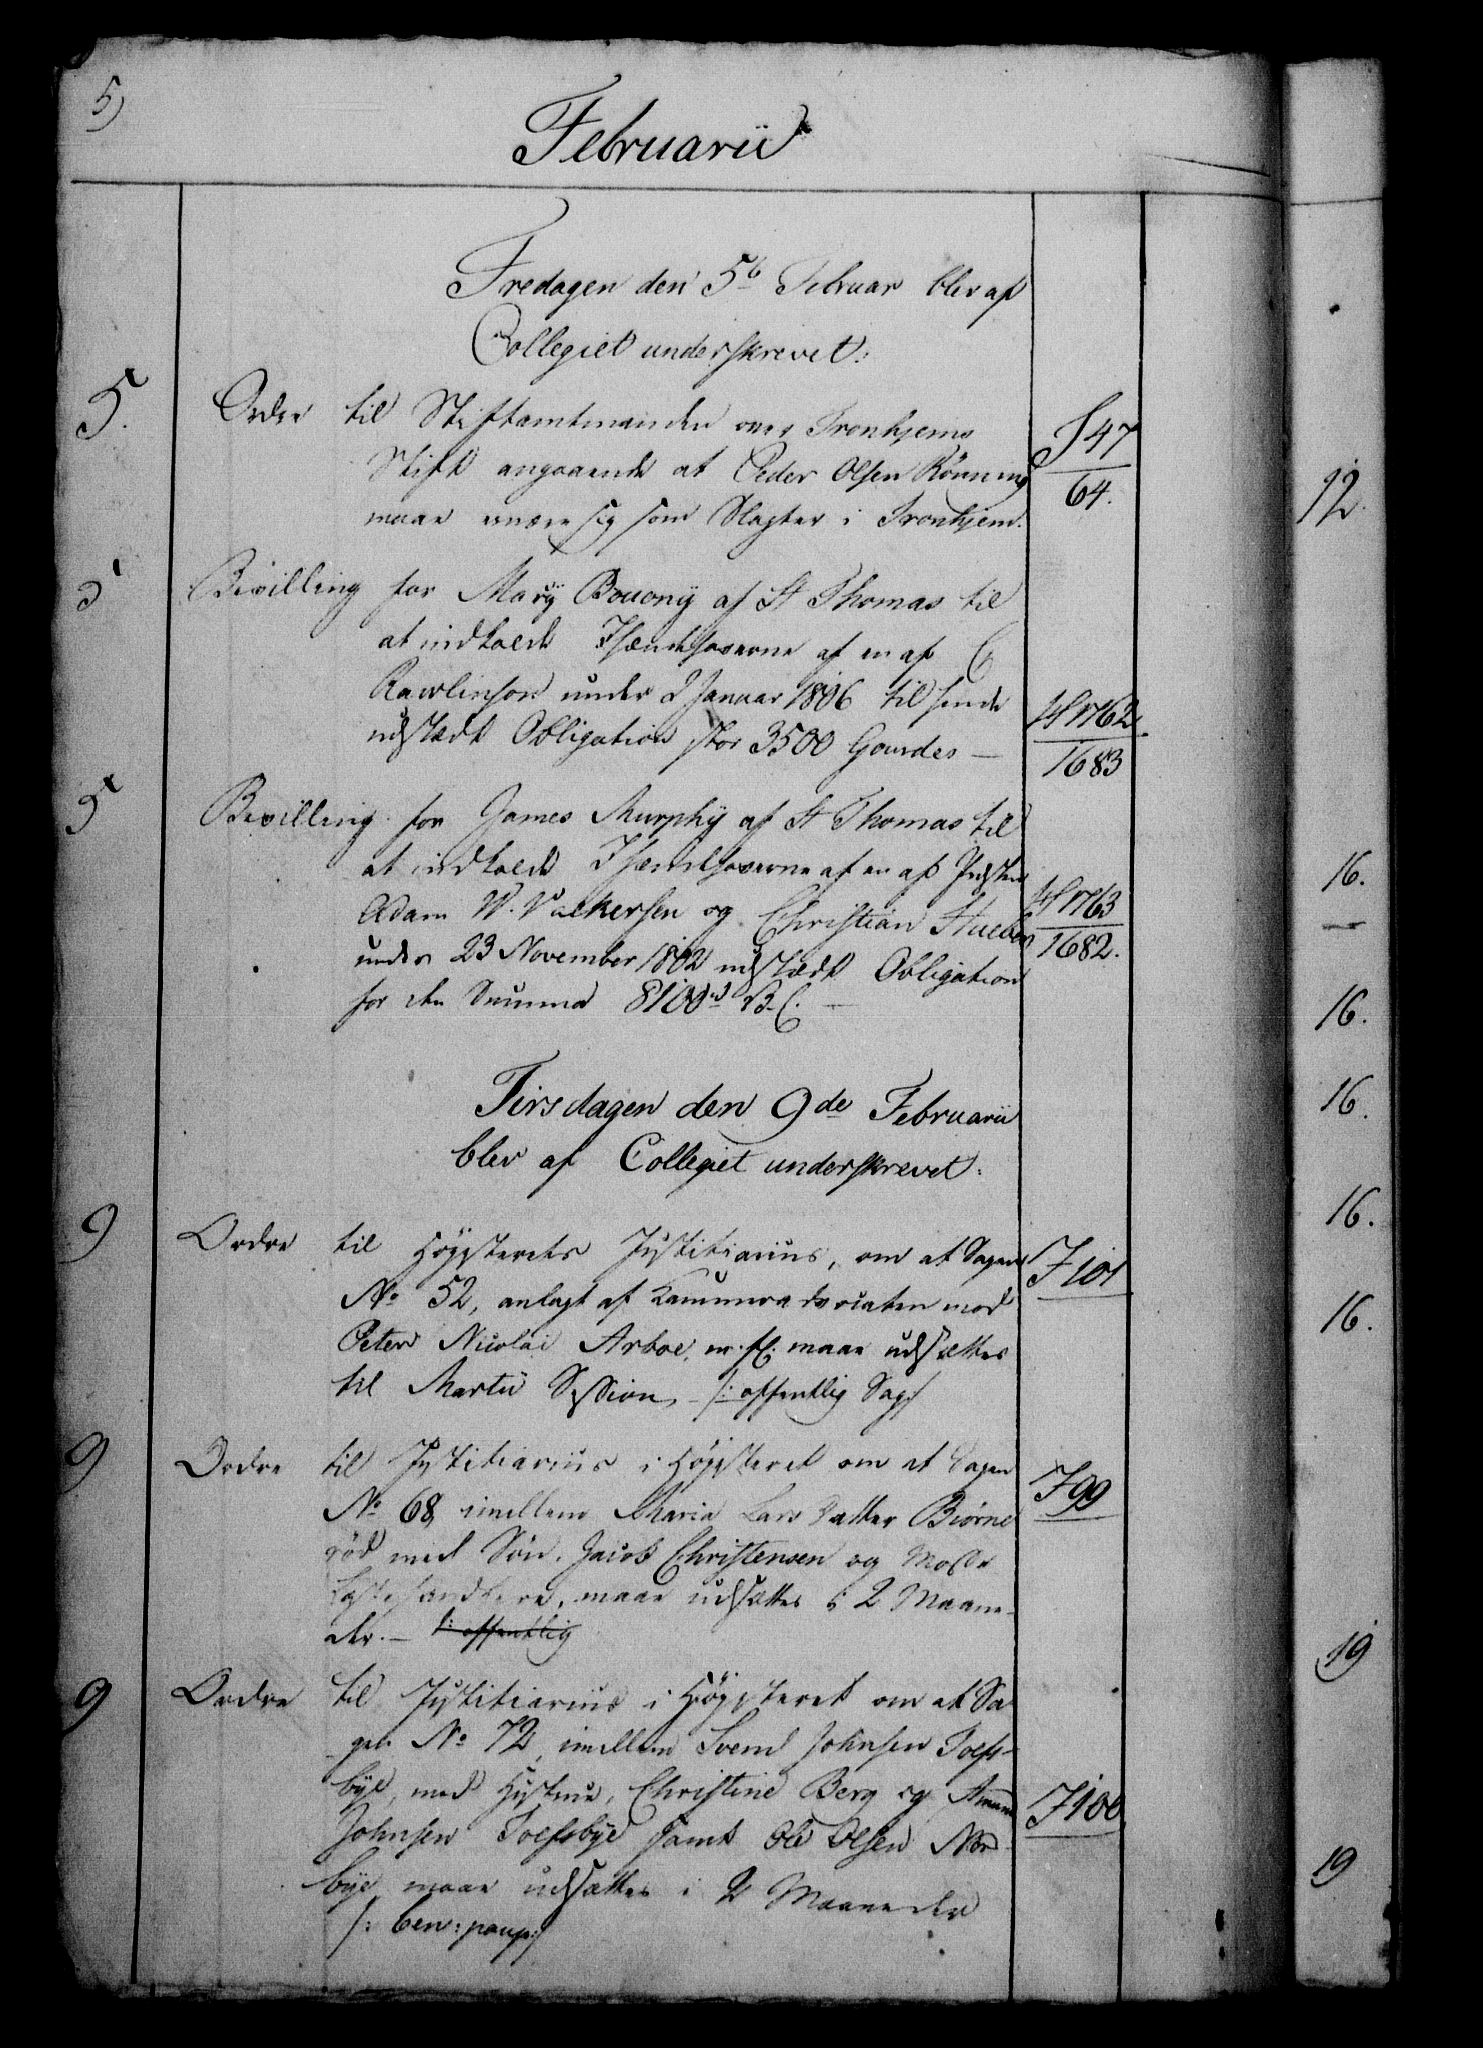 5)
Februarii
Fredagen den 5t Februar blev af
Collegiet underskrevet:
5. Ordre til Stiftamtmanden over Tronhjems
Stift angaaende at Peder Olsen Rönning
maae ernære sig som Slagter i Tronhjem.
S 47
64.
5 Bevilling for Mary Bouony af St Thomas til
at indkalde Ihændehaverne af en af C
Rawlinson under 2 Januar 1806 til hende
udstædt Obligation stor 3500 Gourdes —
1762.
1683
5 Bevilling for James Murphy af St Thomas til
at indkalde Ihændehaverne af en af
Adam W. Valkersen og Christian Stueber
under 23 November 1802 udstædt Obligation
for den Summa 8100 rd V. C. —
1763
1682.
Tirsdagen den 9de Februarii
blev af Collegiet underskrevet:
9 Ordre til Höysterets Justitiarius, om at Sagen
No 52, anlagt af Kammeradvocaten mod
Peter Nicolai Arboe, m. fl. maae udsættes
til Martii Session, /: offentlig Sag /
J 101
9 Ordre til Justitiarius i Höysteret om at Sagen
No 68, imellem Maria Lars Datter Biørne
röd med Sön, Jacob Christensen og Moss
Lastehandlere, maae udsættes i 2 Maane-
der. — /: offentlig
J 99
9 Ordre til Justitiarius i Höysteret om at Sa
gen No 72, imellem Svend Johnsen Toefs-
bye, med Hustrue, Christine Berg og
Johnsen Toefsbye samt Ole Olsen Nor
bye maae udsættes i 2 Maaneder
/: ben: paup: /
J 100
12.
16.
—
16.
16.
16.
16.
19
19